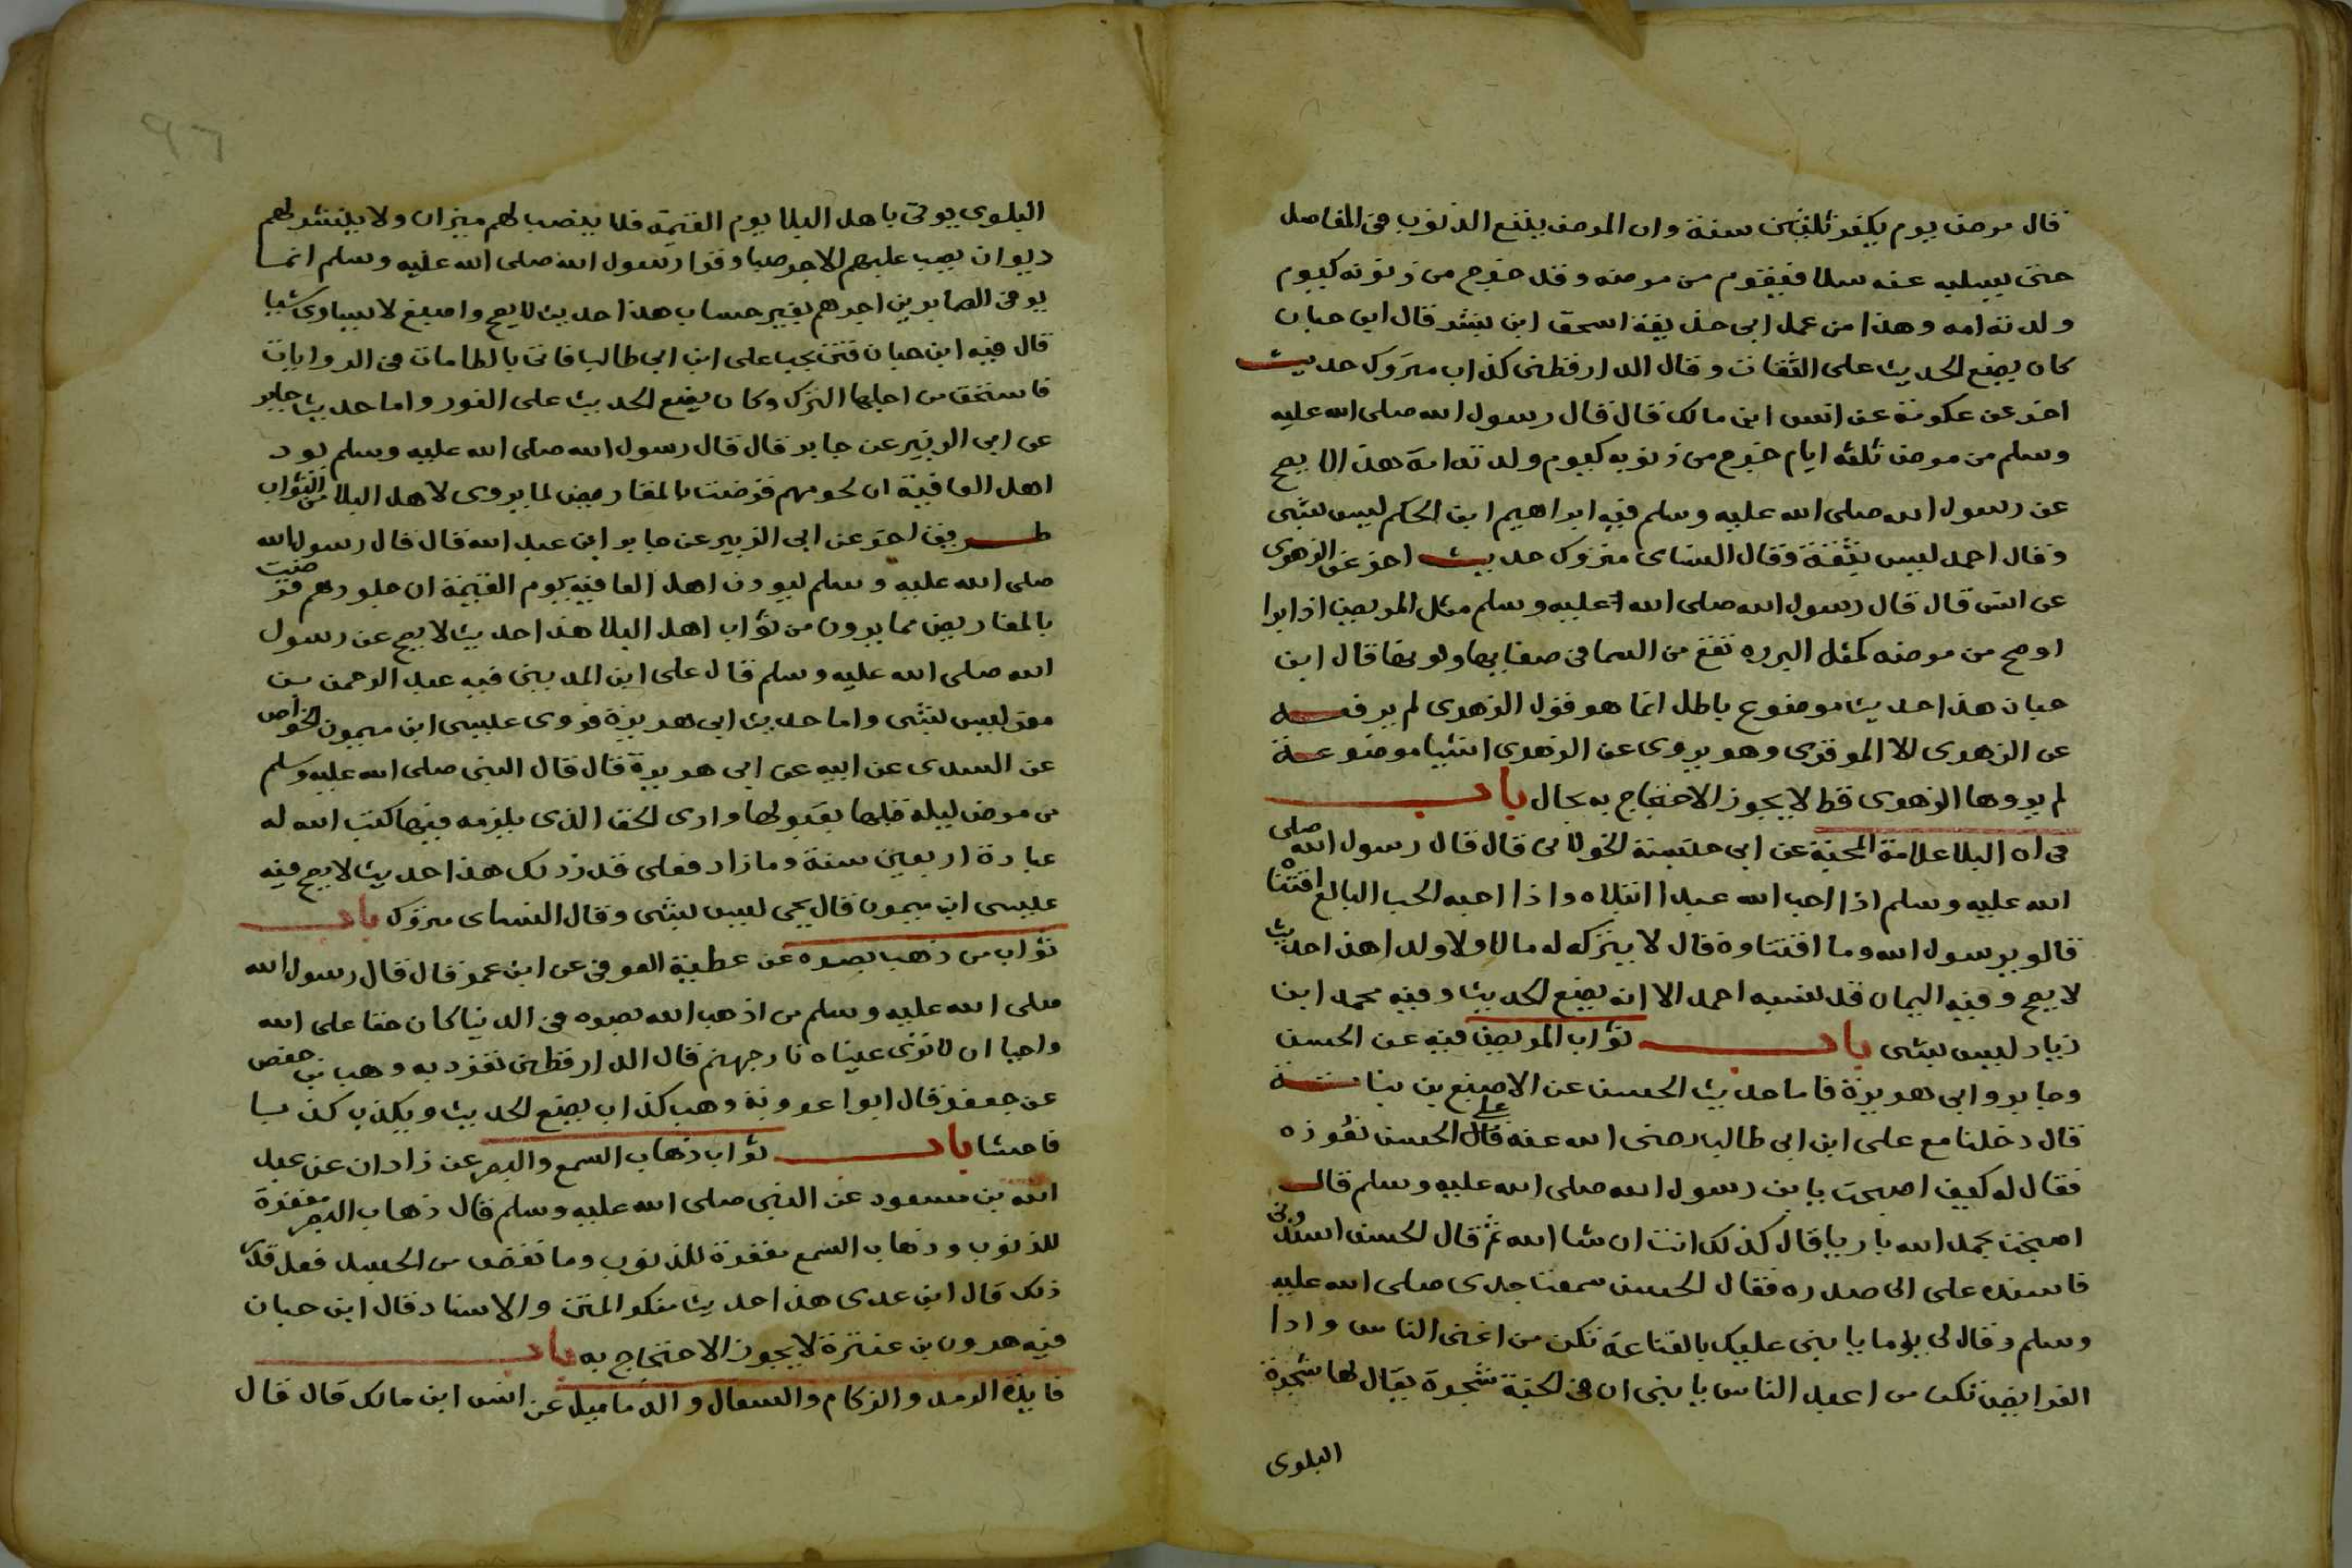 قال مرض يوم يكفر ثلثين سنة وان المرض يتبع الذنوب في المفاصل
حتى يسله عنه سلا فيقوم من مرضه وقد خرج من ذنوبه كيوم
ولدته امه وهذا من عمل ابي حذيفة اسحق ابن بشر قال ابن حبان
كان يضع الحديث على الثقات وقال الدارقطني كذاب متروك حديث
اخر عن عكرمة عن انس ابن مالك قال قال رسول الله صلى الله عليه
وسلم من مرض ثلثه ايام خرج من ذنوبه كيوم ولدته امه هذا لا يصح
عن رسول الله صلى الله عليه وسلم فيه ابراهيم ابن الحكم ليس بشى
وقال احمد ليس بثقة وقال النساى متروك حديث اخر عن الزهرى
عن انس قال قال رسول الله صلى الله عليه وسلم مثل المريض اذا برا
اوصح من مرضه كمثل البرده تقع من السما في صفايها ولونها قال ابن
حبان هذا حديث موضوع باطل انما هو قول الزهرى لم يرفعه
عن الزهرى الا الموقرى وهو يروى عن الزهرى اشيا موضوعة
لم يروها الزهرى قط لا يجوز الاحتجاج به بحال باب
في ان البلا علامة المحبة عن ابي عتبة الخولاني قال قال رسول الله صلى
الله عليه وسلم اذا احب الله عبدا ابتلاه واذا احبه الحب البالغ اقتنا
قالو يرسول الله وما اقتناوه قال لا يتركه له مالا ولا ولدا هذا حديث
لا يصح وفيه اليمان قد نسبه احمد الا انه يضع الحديث وفيه محمد ابن
زياد ليس بشى باب ثواب المريض فيه عن الحسن
وجابر وابي هريرة فاما حديث الحسن عن الاصبغ بن نباتة
قال دخلنا مع على ابن ابي طالب رضى الله عنه قال على الحسن نعوده
فقال له كيف اصبحت يابن رسول الله صلى الله عليه وسلم قال
اصبحت بحمد الله باريا قال كذلك انت ان شا الله ثم قال الحسن اسندوني
فاسنده على الى صدره فقال الحسن سمعت جدى صلى الله عليه
وسلم وقال لى يوما يا بنى عليك بالقناعة تكن من اغنى الناس وادا
الفرايض تكن من اعبد الناس يا بنى ان في الجنة شجرة يقال لها شجرة
البلوى
البلوى يوتى باهل البلا يوم القيمة فلا ينصب لهم ميزان ولا ينشر لهم
ديوان يصب عليهم الاجر صبا وقرا رسول الله صلى الله عليه وسلم انما
يوفى الصابرين اجرهم بغير حساب هذا حديث لا يصح واصبغ لا يساوى شيا
قال فيه ابن حبان فتن بحب على ابن ابي طالب فاتى بالطامات في الروايات
فاستحق من اجلها الترك وكان يضع الحديث على الفور واما حديث جابر
عن ابي الزبير عن جابر قال قال رسول الله صلى الله عليه وسلم يود
اهل العافية ان لحومهم قرضت بالمقاريض لما يروى لاهل البلا من الثواب
طريق اخر عن ابي الزبير عن جابر ابن عبد الله قال قال رسول الله
صلى الله عليه وسلم ليودن اهل العافية يوم القيمة ان جلودهم قرضت
بالمقاريض مما يرون من ثواب اهل البلا هذا حديث لا يصح عن رسول
الله صلى الله عليه وسلم قال على ابن المديني فيه عبد الرحمن بن
مغر ليس بشى واما حديث ابي هريرة فروى عيسى ابن ميمون الخواص
عن السدى عن ابيه عن ابي هريرة قال قال النبي صلى الله عليه وسلم
من مرض ليلة فقبلها بقبولها وادى الحق الذى يلزمه فيها كتب الله له
عبادة اربعين سنة وما زاد فعلى قدر ذلك هذا حديث لا يصح فيه
عيسى ابن ميمون قال يحيى ليس بشى وقال النساى متروك باب
ثواب من ذهب بصره عن عطية العوفى عن ابن عمر قال قال رسول الله
صلى الله عليه وسلم من اذهب الله بصره في الدنيا كان حقا على الله
واجبا ان لا ترى عيناه نار جهنم قال الدارقطنى تفرد به وهب بن حفص
عن جعفر قال ابوا عروبة وهب كذاب يضع الحديث ويكذب كذبا
فاحشا باب ثواب ذهاب السمع والبصر عن زادان عن عبد
الله بن مسعود عن النبي صلى الله عليه وسلم قال ذهاب البصر مغفرة
للذنوب وذهاب السمع مغفرة للذنوب وما نقص من الجسد فعلى قدر
ذلك قال ابن عدى هذا حديث منكر المتن والاسناد قال ابن حبان
فيه هرون بن عنترة لا يجوز الاحتجاج به باب
فايدة الرمد والزكام والسعال والدماميل عن انس ابن مالك قال قال